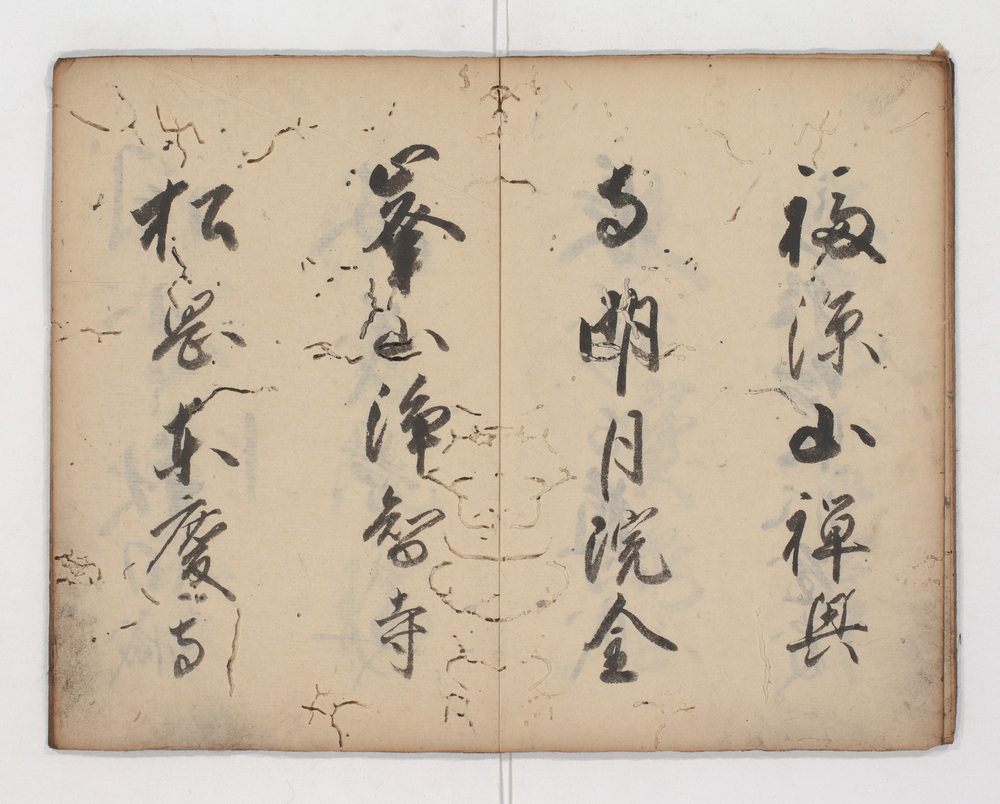 福源山禅興
寺明月院金
峯山浄智寺
松岡東慶寺